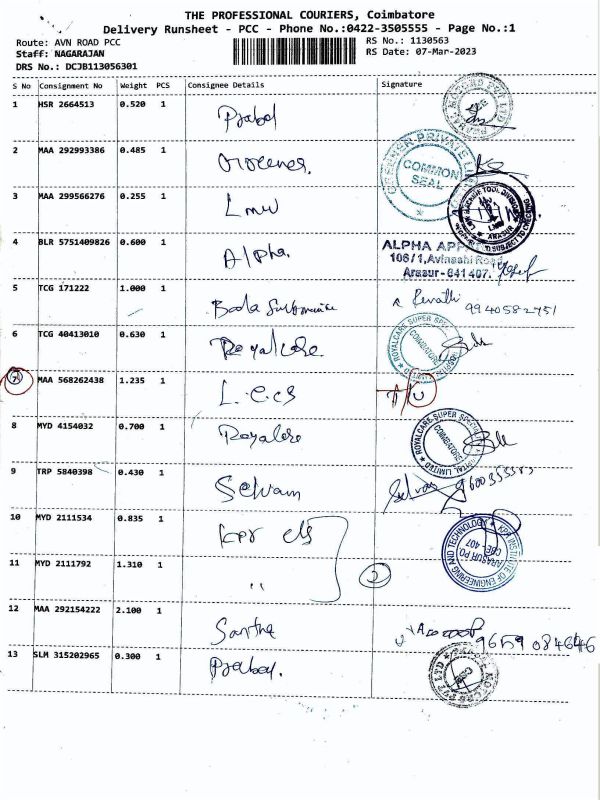 THE PROFESSIONAL COURIERS, Coimbatore
Delivery Runsheet - PCC - Phone No.:0422-3505555 - Page No.:1
Route: AVN ROAD PCC
RS No.: 1130563
Staff: NAGARAJAN
RS Date: 07-Mar-2023
DRS No.: DCJB113056301
S No Consignment No Weight PCS Consignee Details Signature
1 HSR 2664513 0.520 1 Prabal
2 MAA 292993386 0.485 1 Greener
COMMON SEAL
3 MAA 299566276 0.255 1 Lmw
LMW ARASUR
4 BLR 5751409826 0.600 1 Alpha.
ALPHA
106/1, Avinashi Road
Arasur-641 407.
5 TCG 171222 1.000 1 Revathi 9940582751
6 TCG 40413010 0.630 1 Royalcare
ROYALCARE SUPER COIMBATORE
7 MAA 568262438 1.235 1 L.e.cs
8 MYD 4154032 0.700 1 Royalcare
ROYALCARE SUPER COIMBATORE LIMITED
9 TRP 5840398 0.430 1 Selvam
10 MYD 2111534 0.835 1 kpr
KPR INSTITUTE OF ENGINEERING AND TECHNOLOGY ARASUR PO CBE 407
11 MYD 2111792 1.310 1 " 2
12 MAA 292154222 2.100 1 Santha
9659084646
13 SLM 315202965 0.300 1 Prabal.